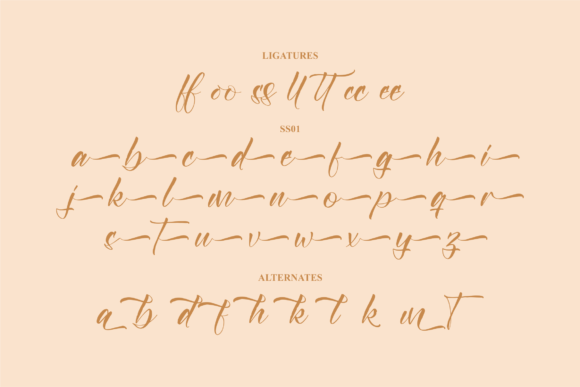 LIGATURES
ff oo ss ll tt cc ee
SS01
a b c d e f g h i
j k l m n o p q r
s t u v w x y z
ALTERNATES
a b d f h k t k m t